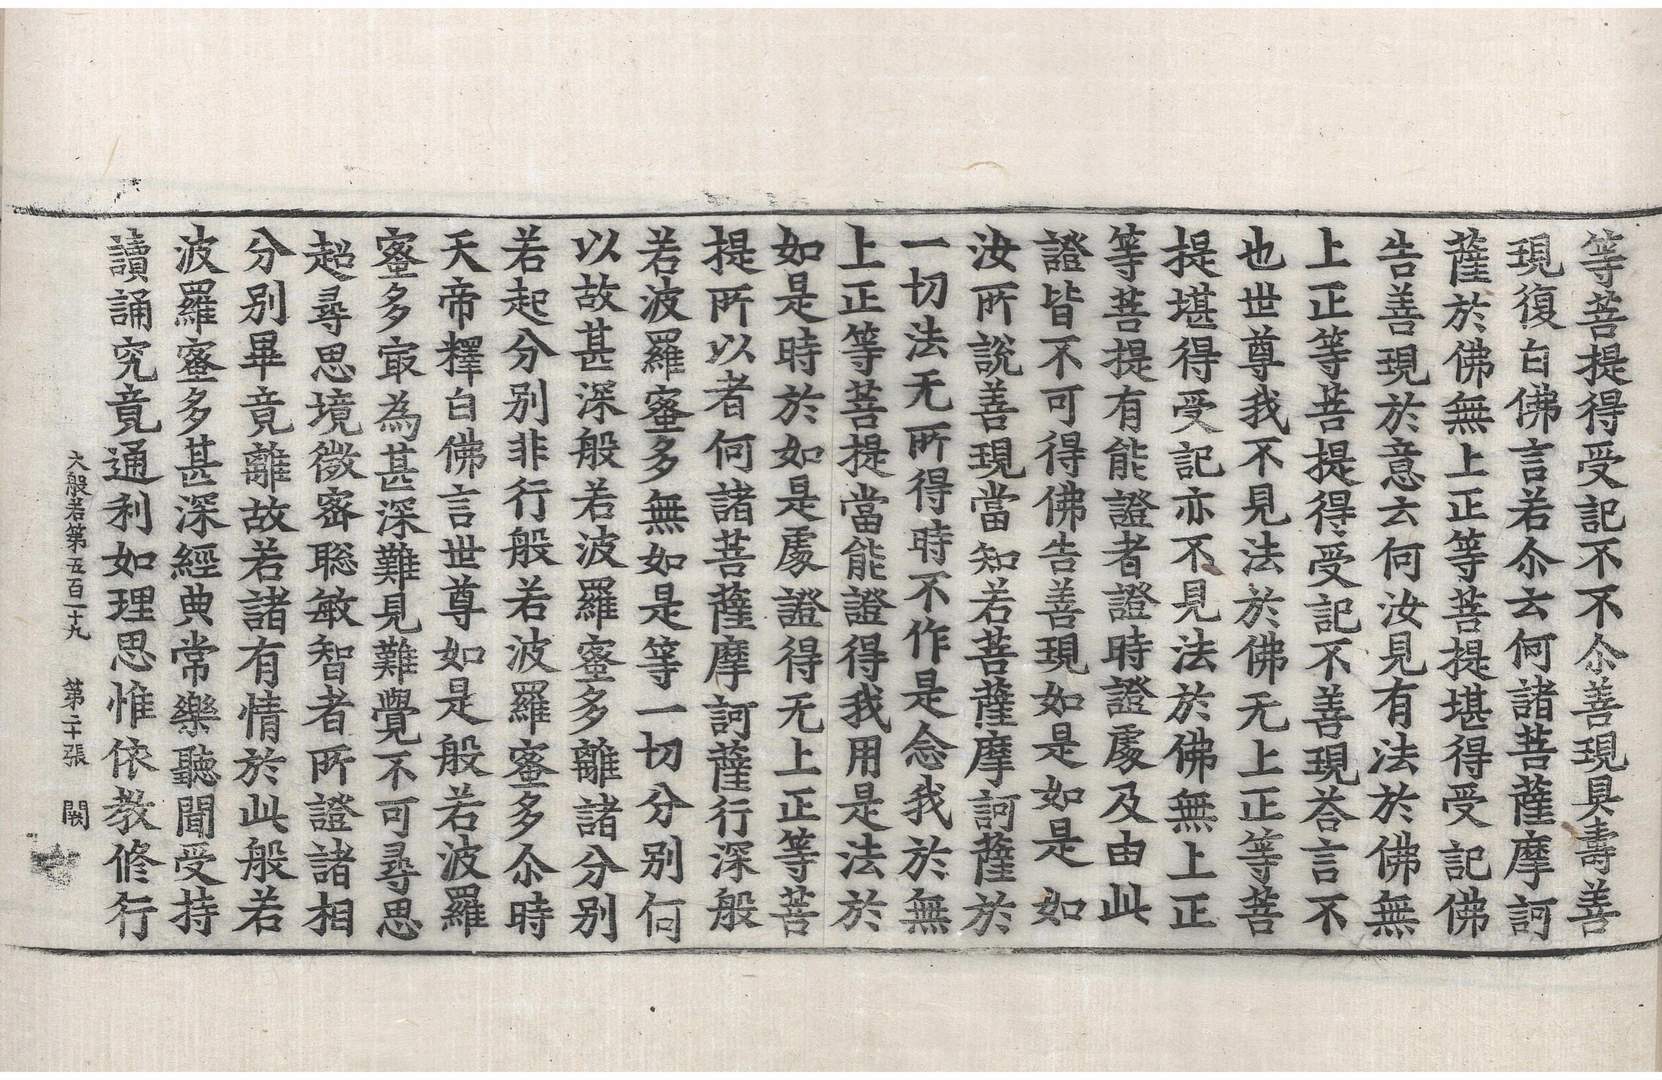 等菩提得受記不不尒善現具壽善
現復白佛言若尒云何諸菩薩摩訶
薩於佛無上正等菩提堪得受記佛
告善現於意云何汝見有法於佛無
上正等菩提得受記不善現荅言不
也世尊我不見法於佛无上正等菩
提堪得受記亦不見法於佛無上正
等菩提有能證者證時證處及由此
證皆不可得佛告善現如是如是如
汝所說善現當知若菩薩摩訶薩於
一切法无所得時不作是念我於無
上正等菩提當能證得我用是法於
如是時於如是處證得无上正等菩
提所以者何諸菩薩摩訶薩行深般
若波羅蜜多無如是等一切分别何
以故甚深般若波羅蜜多離諸分别
若起分别非行般若波羅蜜多尒時
天帝釋白佛言世尊如是般若波羅
蜜多㝡為甚深難見難覺不可尋思
超尋思境微密聡敏智者所證諸相
分别畢竟離故若諸有情於此般若
波羅蜜多甚深經典常樂聽聞受持
讀誦究竟通利如理思惟依教修行
大般若第五百一十九　第二十張　闕